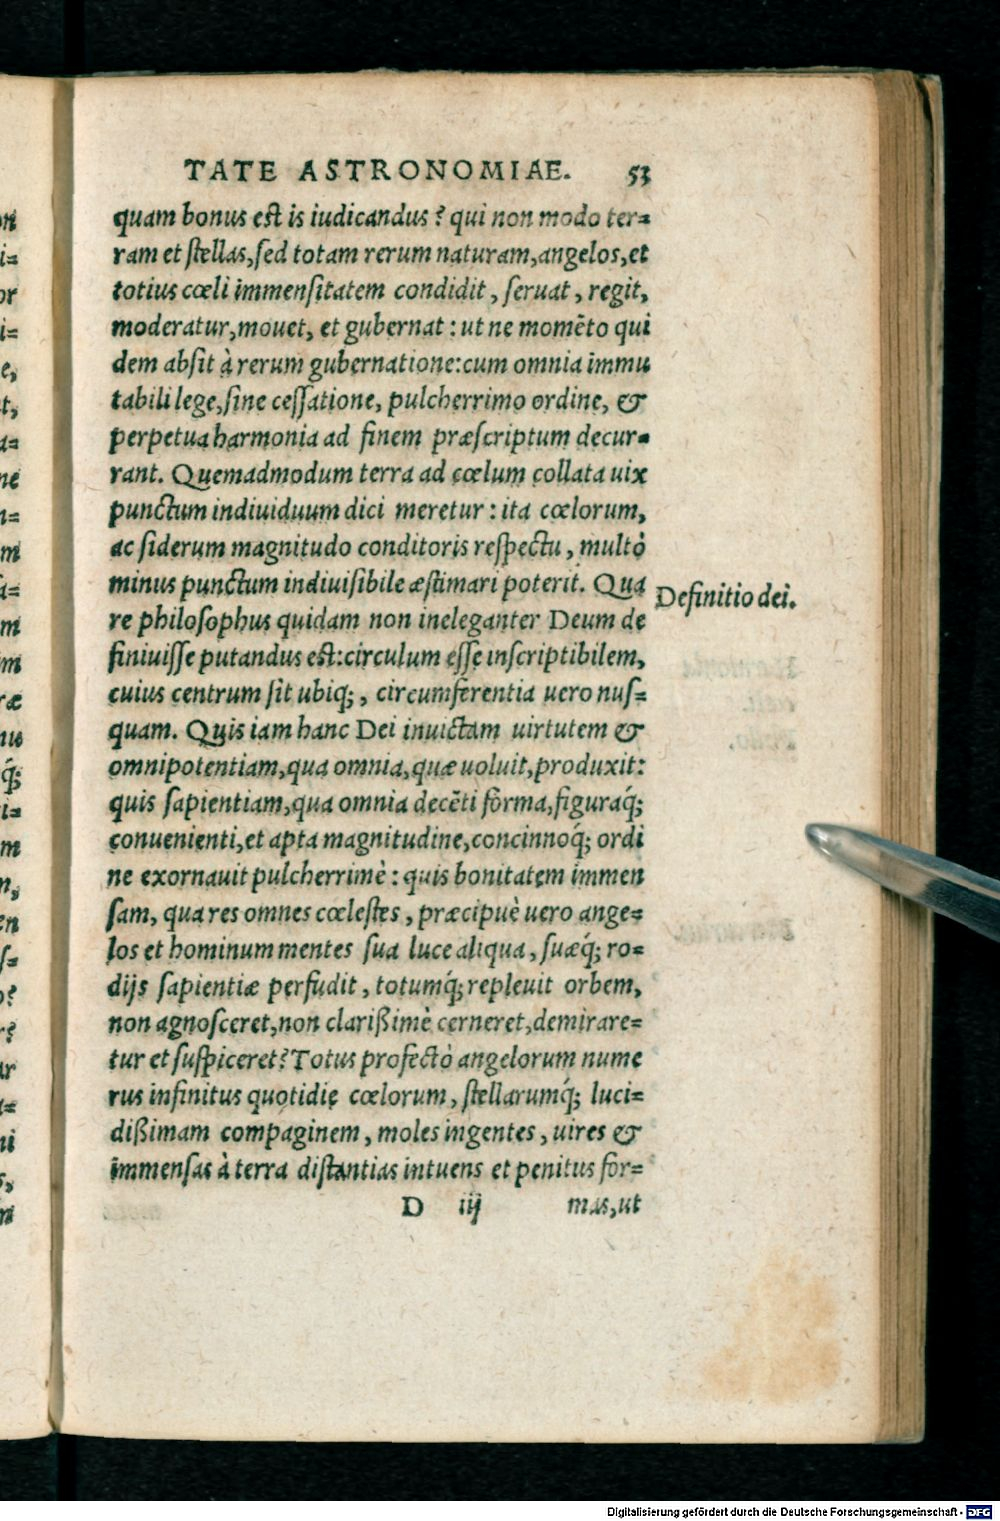 TATE ASTRONOMIAE. 53
quam bonus est is iudicandus? qui non modo ter=
ram et stellas, sed totam rerum naturam, angelos, et
totius cœli immensitatem condidit, seruat, regit,
moderatur, mouet, et gubernat: ut ne momẽto qui
dem absit à rerum gubernatione: cum omnia immu
tabili lege, sine cessatione, pulcherrimo ordine, &
perpetua harmonia ad finem præscriptum decur=
rant. Quemadmodum terra ad cœlum collata uix
punctum indiuiduum dici meretur: ita cœlorum,
ac siderum magnitudo conditoris respectu, multò
minus punctum indiuisibile æstimari poterit. Qua
re philosophus quidam non ineleganter Deum de
finiuisse putandus est: circulum esse inscriptibilem,
cuius centrum sit ubiq;, circumferentia uero nus=
quam. Quis iam hanc Dei inuictam uirtutem &
omnipotentiam, qua omnia, quæ uoluit, produxit:
quis sapientiam, qua omnia decẽti forma, figuraq́;
conuenienti, et apta magnitudine, concinnoq́; ordi
ne exornauit pulcherrimè: quis bonitatem immen
sam, qua res omnes cœlestes, præcipuè uero ange=
los et hominum mentes sua luce aliqua, suæq́; ro=
dijs sapientiæ perfudit, totumq́; repleuit orbem,
non agnosceret, non clarißimè cerneret, demirare=
tur et suspiceret? Totus profectò angelorum nume
rus infinitus quotidie cœlorum, stellarumq́; luci=
dißimam compaginem, moles ingentes, uires &
immensas à terra distantias intuens et penitus for=
D iij mas, ut
Definitio dei.
Digitalisierung gefördert durch die Deutsche Forschungsgemeinschaft - DFG